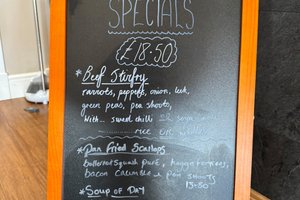 SPECIALS
£18.50
*Beef Stirfry
carrots, peppers, onion, leek,
green peas, pea shoots,
With... sweet chilli OR soya
rice
*Pan Fried Scallops
Butternut Squash puré,
Bacon Crumble & Pea Shoots
13.50
*Soup of Day